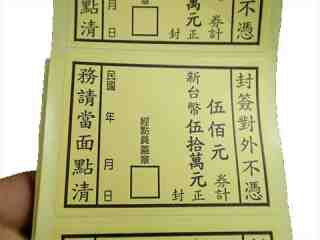 不憑
券計
萬元正
封
月
日
點清
封簽對外不憑
伍佰元券計
新台幣伍拾萬元正
封
經點員蓋章
民國 年 月 日
務請當面點清